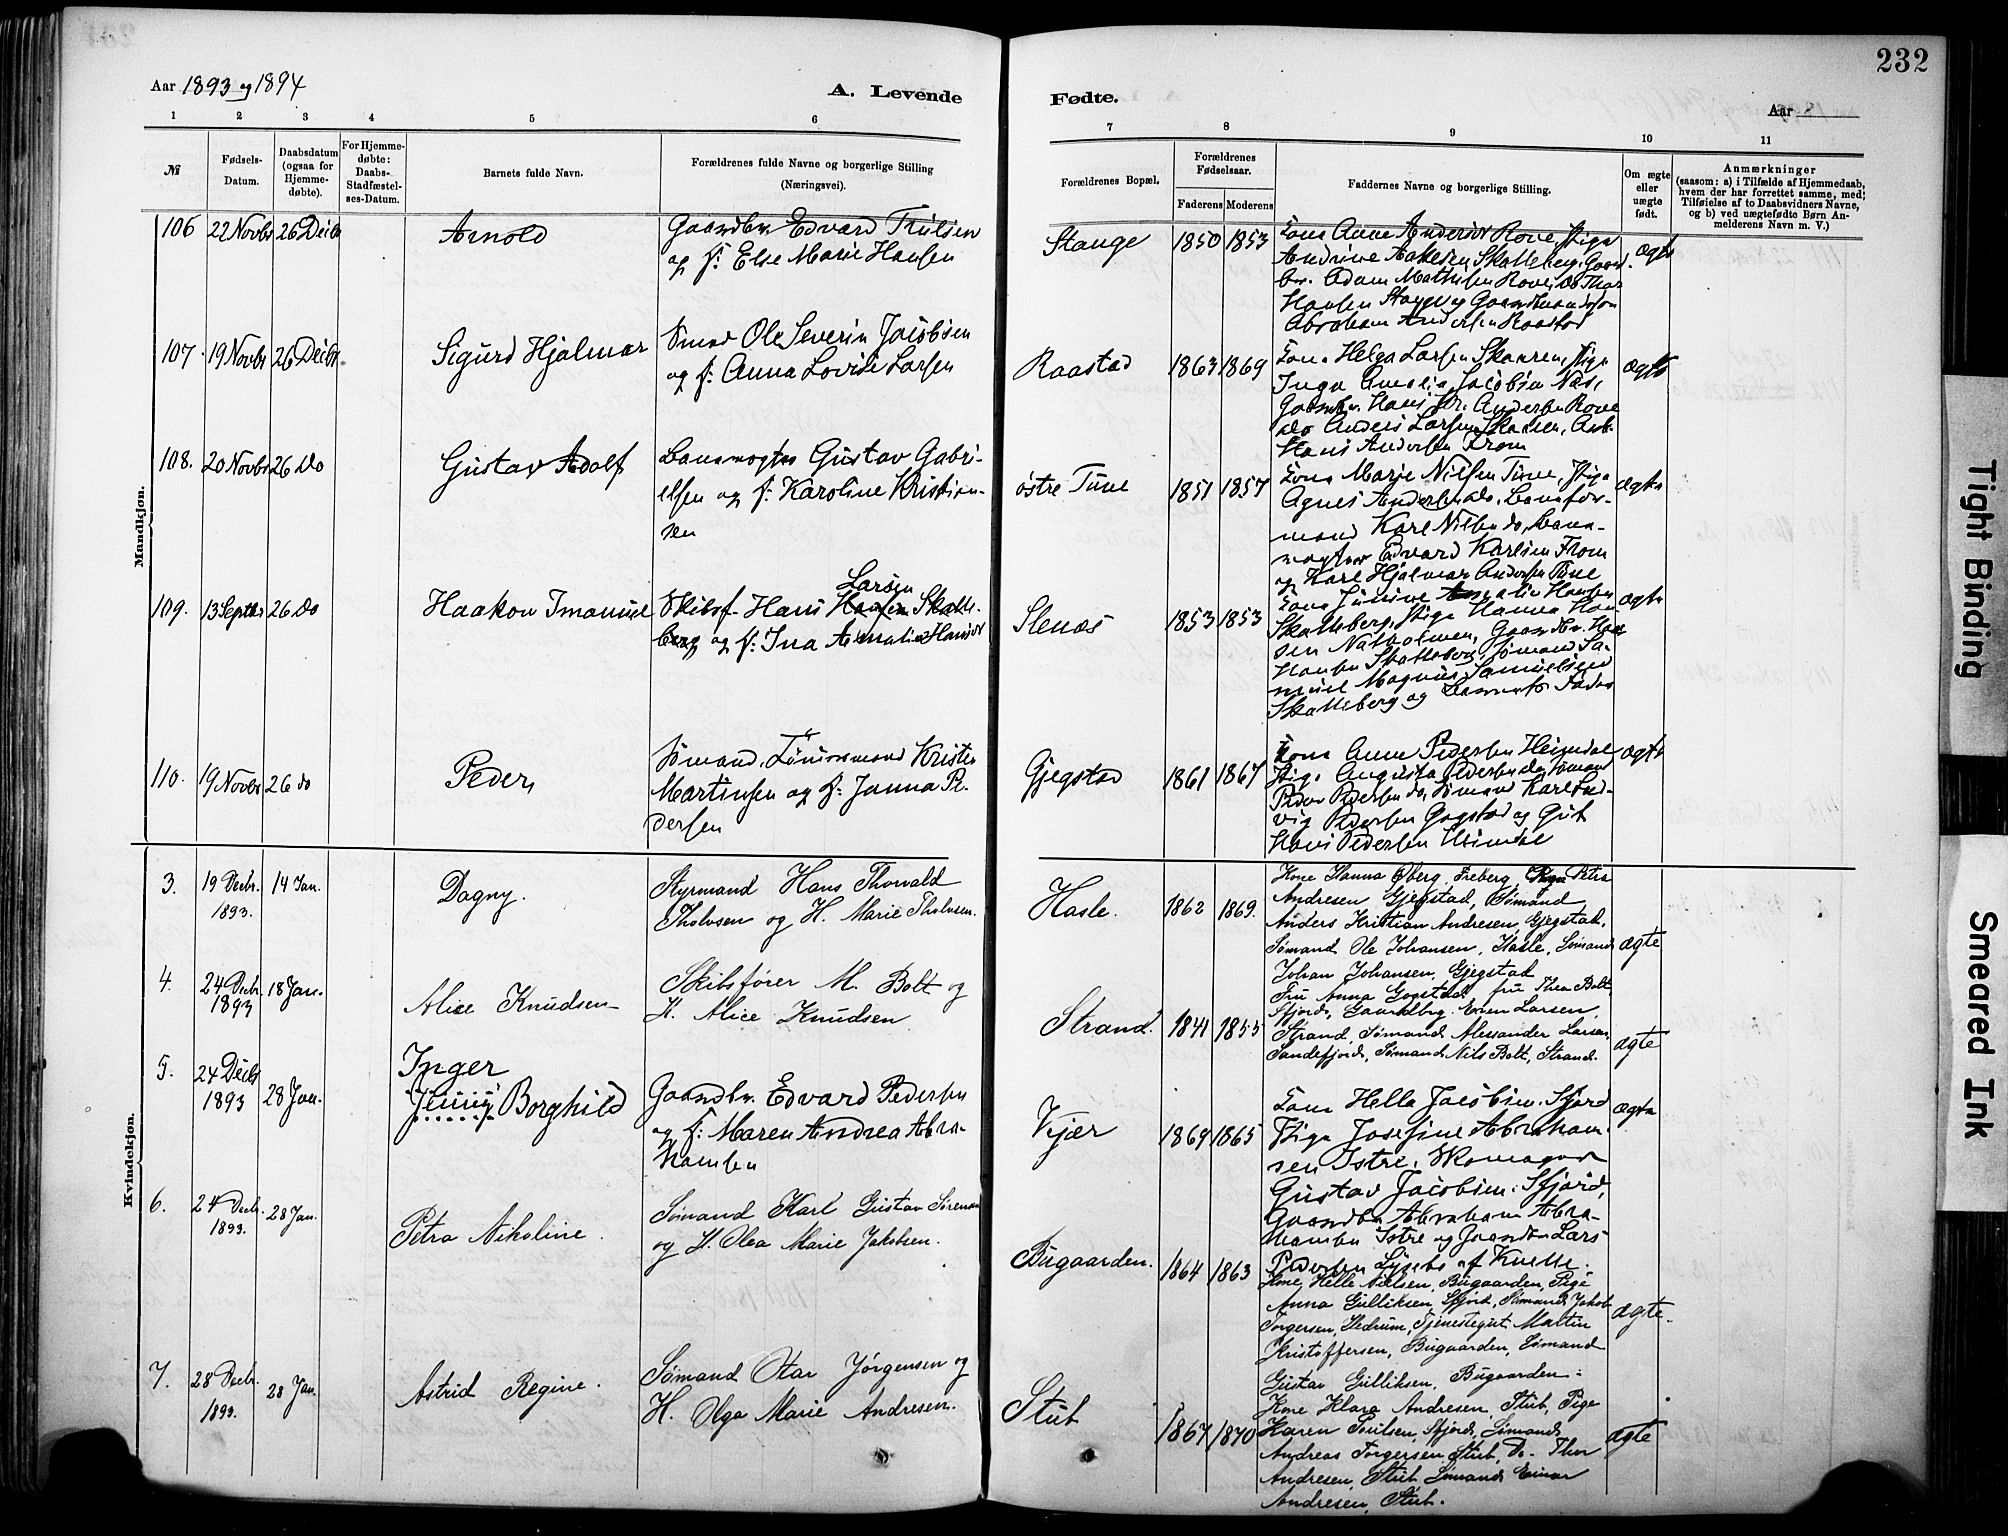 232
Aar 1893 og 1894
A. Levende
Fødte.
Aar
1 2 3 4 5 6
7 8 9 10 11
№
Fødsels-
Datum.
Daabsdatum
(ogsaa for
Hjemme-
døbte).
For Hjemme-
døbte:
Daabs-
Stadfæstel-
ses-Datum.
Barnets fulde Navn.
Forældrenes fulde Navne og borgerlige Stilling
(Næringsvei).
Forældrenes Bopæl.
Forældrenes
Fødselsaar.
Faderens Moderens
Faddernes Navne og borgerlige Stilling.
Om ægte
eller
uægte
født.
Anmærkninger
(saasom: a) i Tilfælde af Hjemmedaab,
hvem der har forrettet samme, med;
Tilføielse af to Daabsvidners Navne,
og b) ved uægtefødte Børn An-
melderens Navn m. V.)
Mandkjøn.
106 22 Novbr 26 Decbr
Arnold
Gaardbr. Edvard
og f: Else Marie Hansen
Stange
1850 1853
Kone Anne Andersen Rove, Pige
Andrine Skalleberg, Gaard-
br. Adam Mathisen Rove, do Thor
Hansen Stange og
Abraham Andersen Raastad
ægte
107. 19 Novbr 26 Decbr.
Sigurd Hjalmar
Smed Ole Severin Jacobsen
og f: Anna Lovise Larsen
Raastad
1863 1869
Kone Helga Larsen Skaaren, Pige
Inga Amalia Jacobsen Næs,
Gaardbr. Hans Kr. Andersen Rove
do Anders Larsen Skaaren, Arb.
Hans Andersen From
ægte
108. 20 Novbr 26 do
Gustav Adolf
Banevogter Gustav Gabri-
elsen og f: Karoline Kristian-
sen
østre Tune
1851 1857
Kone Marie Nielsen Tune, Pige
Agnes Andersen do, Banefor-
mand Karl Nilsen do, Bane-
vogter Edvard Karlsen From
og Karl Hjalmar Andersen Tune
ægte
109. 13 Septbr 26 do
Haakon Imanuel
Larsen
Skibsf. Hans Hansen Skalle-
berg og f: Ina Amalie Hansen
Slenæs
1853 1853
Kone Amalie Hansen
Skalleberg, Pige Hanna Han
sen Natholmen, Gaardbr. Hans
Hansen Skalleberg, Sømand Sa-
muel Magnus Samuelsen
Skalleberg og Barnets Fader
ægte
110. 19 Novbr 26 do
Peder
Sømand, Kristen
Martinsen og f: Janna Pe-
dersen
Gjegstad
1861 1867
Kone Anne Pedersen Heimdal
Pige Augusta Pedersen do, Sømand
Peder Pedersen do, Sømand Karl Lud-
vig Pedersen Gogstad og Gut
Hans Pedersen Heimdal
ægte
Kvindekjøn.
3. 19 Decbr. 1893. 14 Jan.
Dagny.
Styrmand Hans Thorvald
Tholvsen og H. Marie Tholvsen.
Hasle.
1862 1869.
Kone Hanna Øberg, Freberg, Pige Petra
Andresen Gjegstad, Sømand
Anders Kristian Andresen, Gjegstad,
Sømand Ole Johansen, Hasle, Sømand
Johan Johansen, Gjegstad
ægte
4. 24 Decbr. 1893 18 Jan.
Alice Knudsen
Skibsfører M. Bolt og
H. Alice Knudsen
Strand.
1841 1855
Fru Anna Gogstad, fru Thea Bolt,
Sfjord, Gaardbrg. Even Larsen,
Strand, Sømand Alexander Larsen,
Sandefjord, Sømand Nils Bolt, Strand.
ægte
5. 24 Decbr 1893 28 Jan.
Inger
Jenny Borghild
Gaardbr. Edvard Pedersen
og f: Maren Andrea Abra-
hamsen
Kjær
1869 1865
Kone Helle Jacobsen Sfjord
Pige Josefine Abraham-
sen Istre, Skomager
Gustav Jacobsen Sfjord,
Gaardbr Abraham Abra-
hamsen Istre og Gaardbr Lars
Pedersen Lysebo af Kvelle.
ægte
6. 24 Decbr. 1893. 28 Jan.
Petra Nikoline.
Sømand Karl Gustav Sørensen
og H. Olea Marie Jakobsen.
Bugaarden.
1864 1863
Kone Helle Nielsen, Bugaarden, Pige
Anna Gulliksen, Sfjord, Sømand Jakob
Torgersen, Hedrum, Tjenestegut Martin
Kristoffersen, Bugaarden, Sømand
Gustav Gulliksen, Bugaarden.
ægte.
7. 28 Decbr. 1893. 28 Jan.
Astrid Regine.
Sømand Olav Jørgensen og
H. Olga Marie Andresen.
Stub
1867 1870
Kone Klara Andresen, Stub, Pige
Karen Poulsen, Sfjord, Sømand
Andreas Torgersen, Stub, Do. Thor
Andresen, Stub, Sømand Einar
Andresen, Stub.
ægte
Tight Binding
Smeared Ink